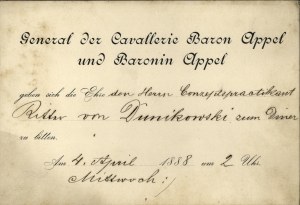 General der Cavallerie Baron Appel
und Baronin Appel
geben sich die Ehre den Herrn Conzeptspractikant
Ritter von Dunikowski zum Diner
zu bitten.
Am 4. April 1888 um 2 Uhr
Mittwoch